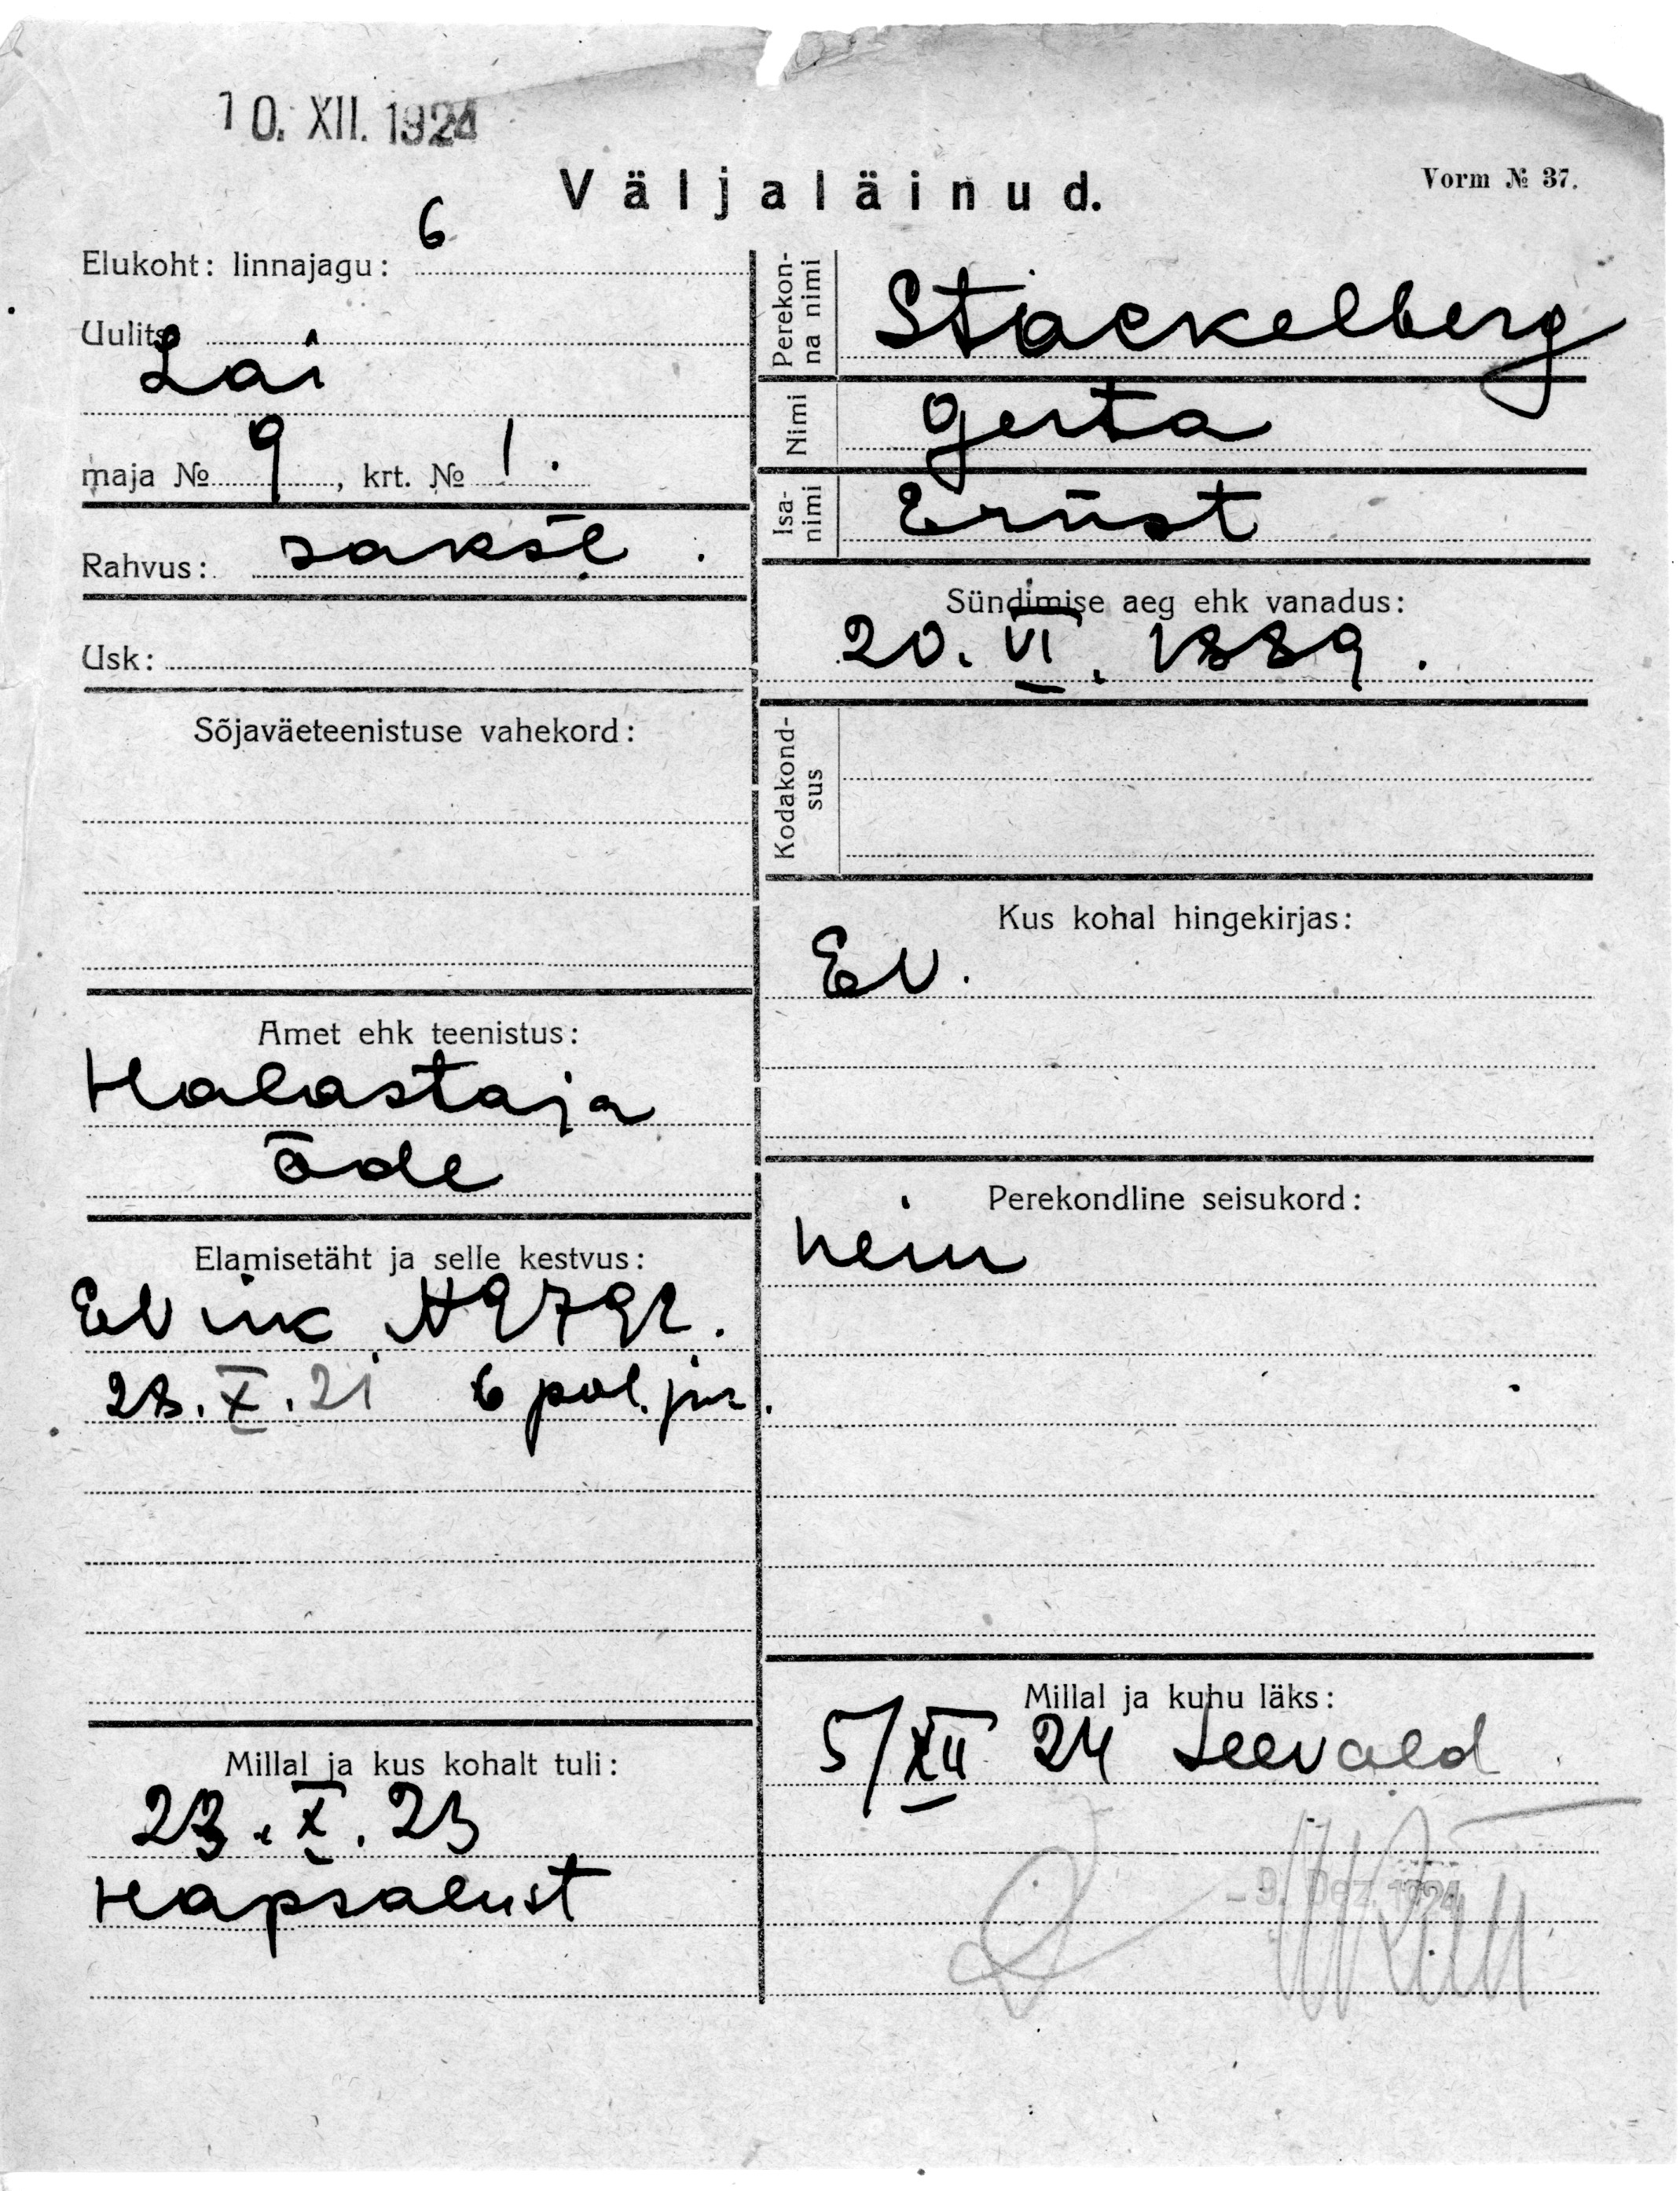 10. XII. 1924
Väljaläinud.
Vorm № 37.
Elukoht: linnajagu: 6
Uulits Lai
maja № 9, krt. № 1.
Rahvus: sakse.
Usk:
Sõjaväeteenistuse vahekord:
Amet ehk teenistus:
Halastaja
õde
Elamisetäht ja selle kestvus:
EV isik № 9792.
28. X. 21 6 pol. jsk.
Millal ja kus kohalt tuli:
23. X. 23
Hapsalust
Perekonna nimi Stackelberg
Nimi Gerta
Isanimi Ernst
Sündimise aeg ehk vanadus:
20. VI. 1889.
Kodakondsus
Kus kohal hingekirjas:
EV.
Perekondline seisukord:
neiu
Millal ja kuhu läks:
5/XII 24 Seevald
- 9. Dez. 1924